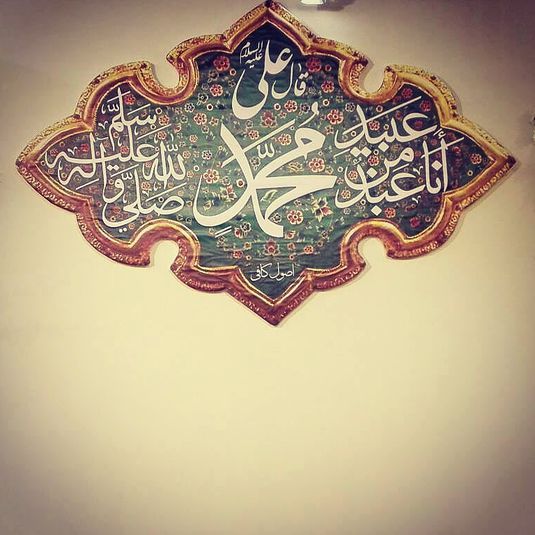 قال علي عليه السلام
أنا عبد من عبيد محمد صلى الله عليه وآله وسلم
اصول كافى